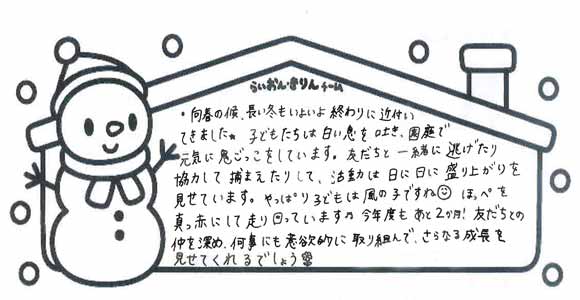 らいおん・きりんチーム
・向春の候、長い冬もいよいよ終わりに近付い
てきました。子どもたちは白い息を吐き、園庭で
元気に鬼ごっこをしています。友だちと一緒に逃げたり
協力して捕まえたりして、活動は日に日に盛り上がりを
見せています。やっぱり子どもは風の子ですね☺ ほっぺを
真っ赤にして走り回っています♬ 今年度もあと2か月! 友だちとの
仲を深め、何事にも意欲的に取り組んで、さらなる成長を
見せてくれるでしょう